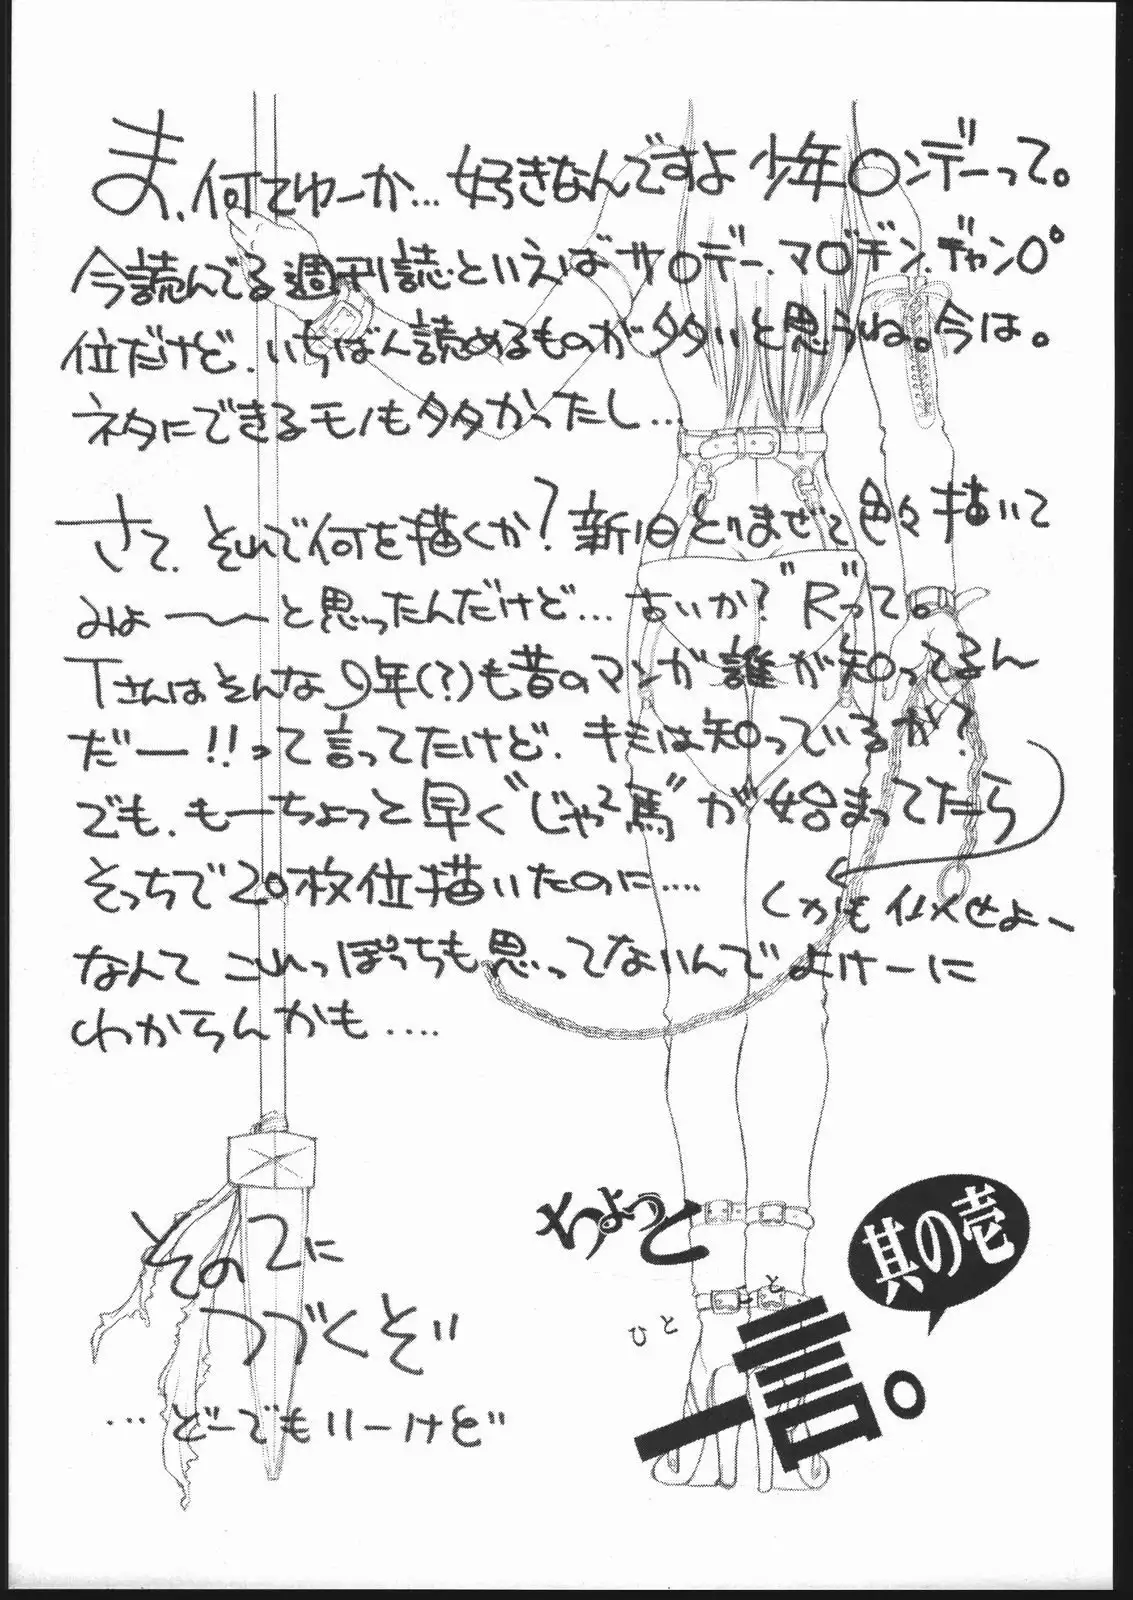 ま、何てゆーか…好きなんですよ少年〇ンデーって。
今読んでる週刊誌といえばサ〇デー、マ〇ヂン、ヂャン〇゜
位だけど、いちばん読めるものが多いと思うね。今は。
ネタにできるモノも多かったし…
さて、それで何を描くか？新旧とりまぜて色々描いて
みよ〜〜と思ったんだけど…古いか？"R"って。
Tさんはそんな9年(？)も昔のマンガ誰が知ってるん
だー!!って言ってたけど、キミは知っているか？
でも、もーちょっと早く"じゃじゃ馬"が始まってたら
そっちで20枚位描いたのに…．
しかも似せよー
なんてこれっぽっちも思ってないんでよけーに
わからんかも‥‥
その2に
つづくぞ!!
…どーでもいーけど
ちょっと
ひとこと
一言。
其の壱